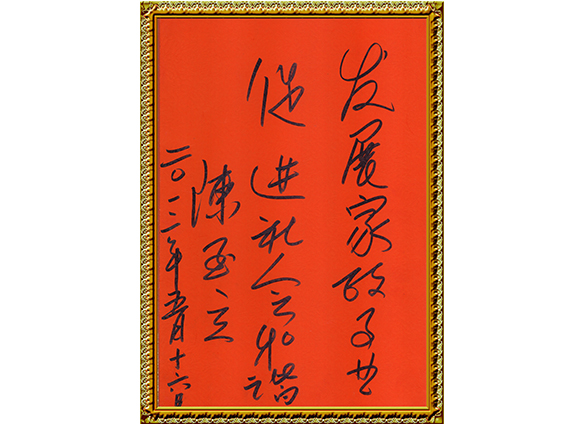 发展家政事业
促进社会和谐
陳至立
二〇一二年五月十六日